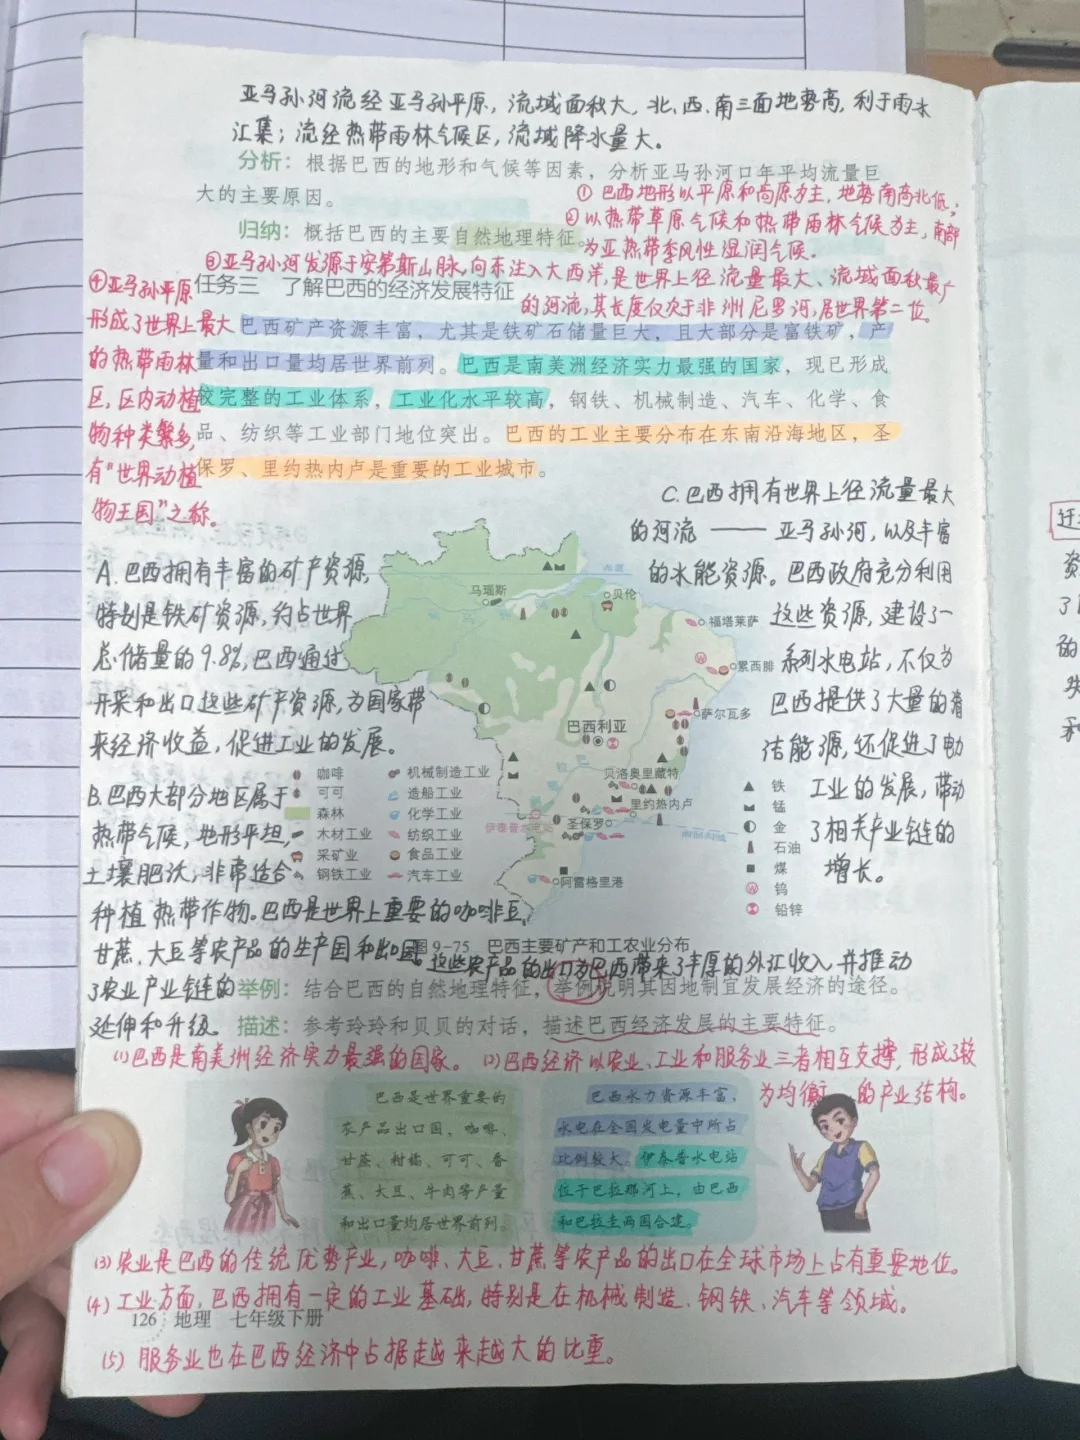 亚马孙河流经亚马孙平原，流域面积大，北、西、南三面地势高，利于雨水
汇集；流经热带雨林气候区，流域降水量大。
分析：根据巴西的地形和气候等因素，分析亚马孙河口年平均流量巨
大的主要原因。
①巴西地形以平原和高原为主，地势南高北低；
归纳：概括巴西的主要自然地理特征。
②以热带草原气候和热带雨林气候为主，南部
为亚热带季风性湿润气候。
③亚马孙河发源于安第斯山脉，向东注入大西洋，是世界上径流量最大、流域面积最广
的河流，其长度仅次于非洲尼罗河，居世界第二位。
④亚马孙平原
形成了世界上最大
的热带雨林
区，区内动植
物种类繁多，
有“世界动植
物王国”之称。
任务三 了解巴西的经济发展特征
巴西矿产资源丰富，尤其是铁矿石储量巨大，且大部分是富铁矿，产
量和出口量均居世界前列。巴西是南美洲经济实力最强的国家，现已形成
较完整的工业体系，工业化水平较高，钢铁、机械制造、汽车、化学、食
品、纺织等工业部门地位突出。巴西的工业主要分布在东南沿海地区，圣
保罗、里约热内卢是重要的工业城市。
C.巴西拥有世界上径流量最大
的河流——亚马孙河，以及丰富
的水能资源。巴西政府充分利用
这些资源，建设了一
系列水电站，不仅为
巴西提供了大量的清
洁能源，还促进了电
工业的发展，带动
了相关产业链的
增长。
A.巴西拥有丰富的矿产资源，
特别是铁矿资源，约占世界
总储量的9.8%，巴西通过
开采和出口这些矿产资源，为国家带
来经济收益，促进工业的发展。
B.巴西大部分地区属于
热带气候，地形平坦，
土壤肥沃，非常适合
种植热带作物。巴西是世界上重要的咖啡豆、
甘蔗、大豆等农产品的生产国和出口国。
这些农产品的出口为巴西带来了丰厚的外汇收入，并推动
了农业产业链的
延伸和升级。
赤道
马瑙斯
贝伦
福塔莱萨
累西腓
萨尔瓦多
巴西利亚
贝洛奥里藏特
里约热内卢
圣保罗
伊泰普水电站
南回归线
阿雷格里港
咖啡
可可
森林
木材工业
采矿业
钢铁工业
机械制造工业
造船工业
化学工业
纺织工业
食品工业
汽车工业
铁
锰
金
石油
煤
钨
铅锌
图9-75 巴西主要矿产和工农业分布
举例：结合巴西的自然地理特征，举例说明其因地制宜发展经济的途径。
描述：参考玲玲和贝贝的对话，描述巴西经济发展的主要特征。
(1)巴西是南美洲经济实力最强的国家。 (2)巴西经济以农业、工业和服务业三者相互支撑，形成了较
为均衡的产业结构。
巴西是世界重要的
农产品出口国，咖啡、
甘蔗、柑橘、可可、香
蕉、大豆、牛肉等产量
和出口量均居世界前列。
巴西水力资源丰富，
水电在全国发电量中所占
比例较大。伊泰普水电站
位于巴拉那河上，由巴西
和巴拉圭两国合建。
(3)农业是巴西的传统优势产业，咖啡、大豆、甘蔗等农产品的出口在全球市场上占有重要地位。
(4)工业方面，巴西拥有一定的工业基础，特别是在机械制造、钢铁、汽车等领域。
126 地理 七年级下册
(5)服务业也在巴西经济中占据越来越大的比重。